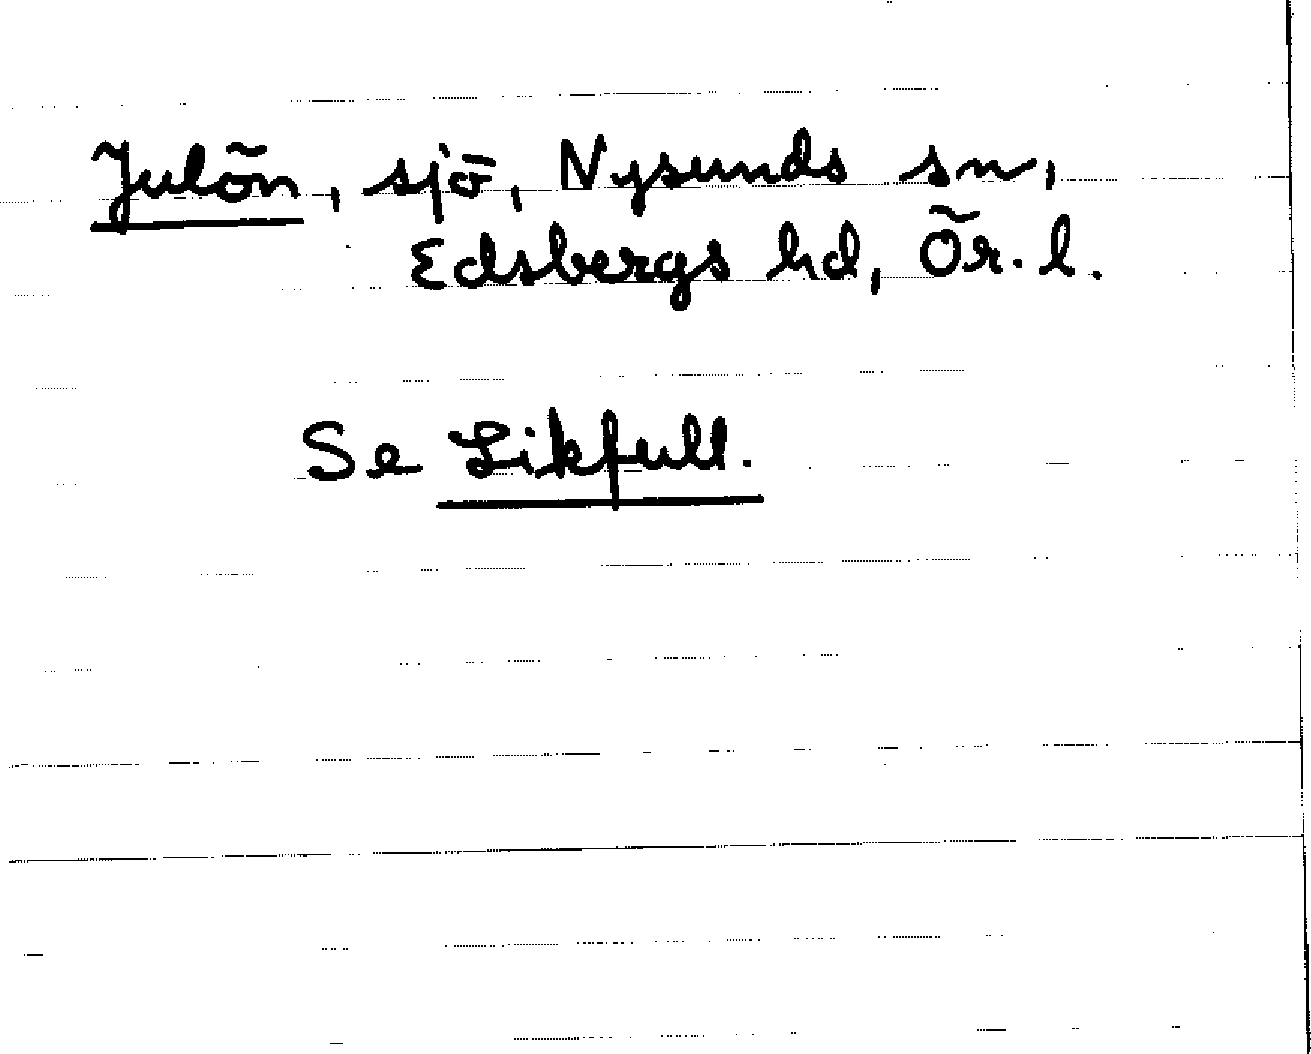 Julön, sjö, Nysunds sn,
Edsbergs hd, Ör. l.
Se Likfull.